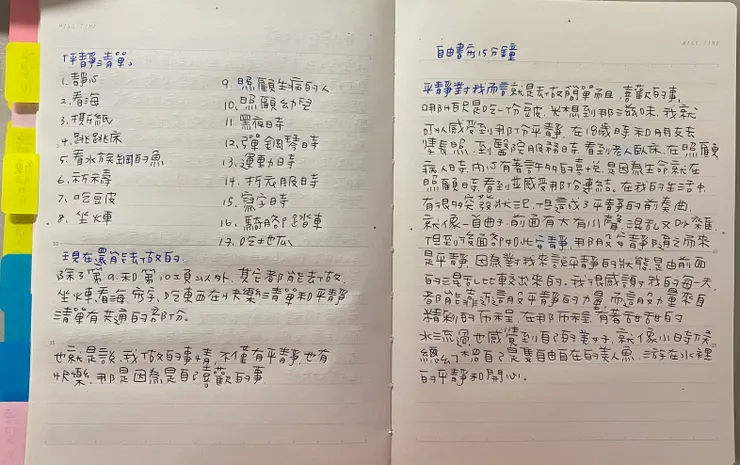 「平靜清單」
1. 靜心
2. 看海
3. 撕紙
4. 跳跳床
5. 看水族箱的魚
6. 祈禱
7. 吃豆皮
8. 坐火車
9. 照顧生病的人
10. 照顧幼兒
11. 黑夜時
12. 彈鋼琴時
13. 運動時
14. 折衣服時
15. 寫字時
16. 騎腳踏車
17. 吃地瓜
現在還能去做的.
除了第9.和第10項以外,其它都能去做.
坐火車,看海,寫字,吃東西在快樂清單和平靜
清單有共通的部份.
也就是說,我做的事情,不僅有平靜,也有
快樂,那是因為是自己喜歡的事
自由書寫15分鐘
平靜對我而言就是去做簡單而且,喜歡的事,
哪怕只是吃一份豆皮,光想到那滋味,我就
可以感受到那份平靜,在18歲時和朋友去
長照,到醫院服務時,看到老人臥床,在照顧
病人時,內心有著許多的喜悅,是因為生命就在
照顧時,看到並感受那份連結。在我的生活中,
有很多突發狀況,但是成了平靜的前奏曲,
就像一首曲子,前面有大有小聲,混亂又吵雜,
但到後面卻如此安靜,那股安靜隨之而來
是平靜,因為對我來說平靜的狀態是由前面
的混亂比較出來的。我很感謝,我的每一天
都能靠近這股平靜的力量,而這股力量來自
精彩的旅程,在那旅程,有著甜甜的
水流過也感覺到自己的美好,就像小時候
總幻想自己是隻自由自在的美人魚,游在水裡
的平靜和開心。